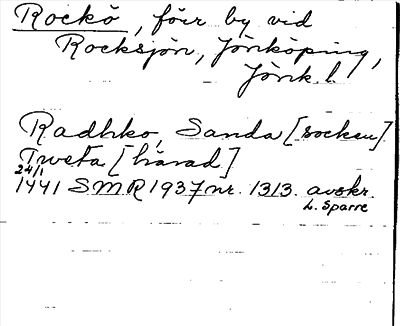 Rockö, förr by vid
Rocksjön, Jönköping,
Jönk. l
Radhko, Sanda [socken]
Tweta [härad]
24/1
1441 SMR 1937 nr. 1313. avskr.
L. Sparre